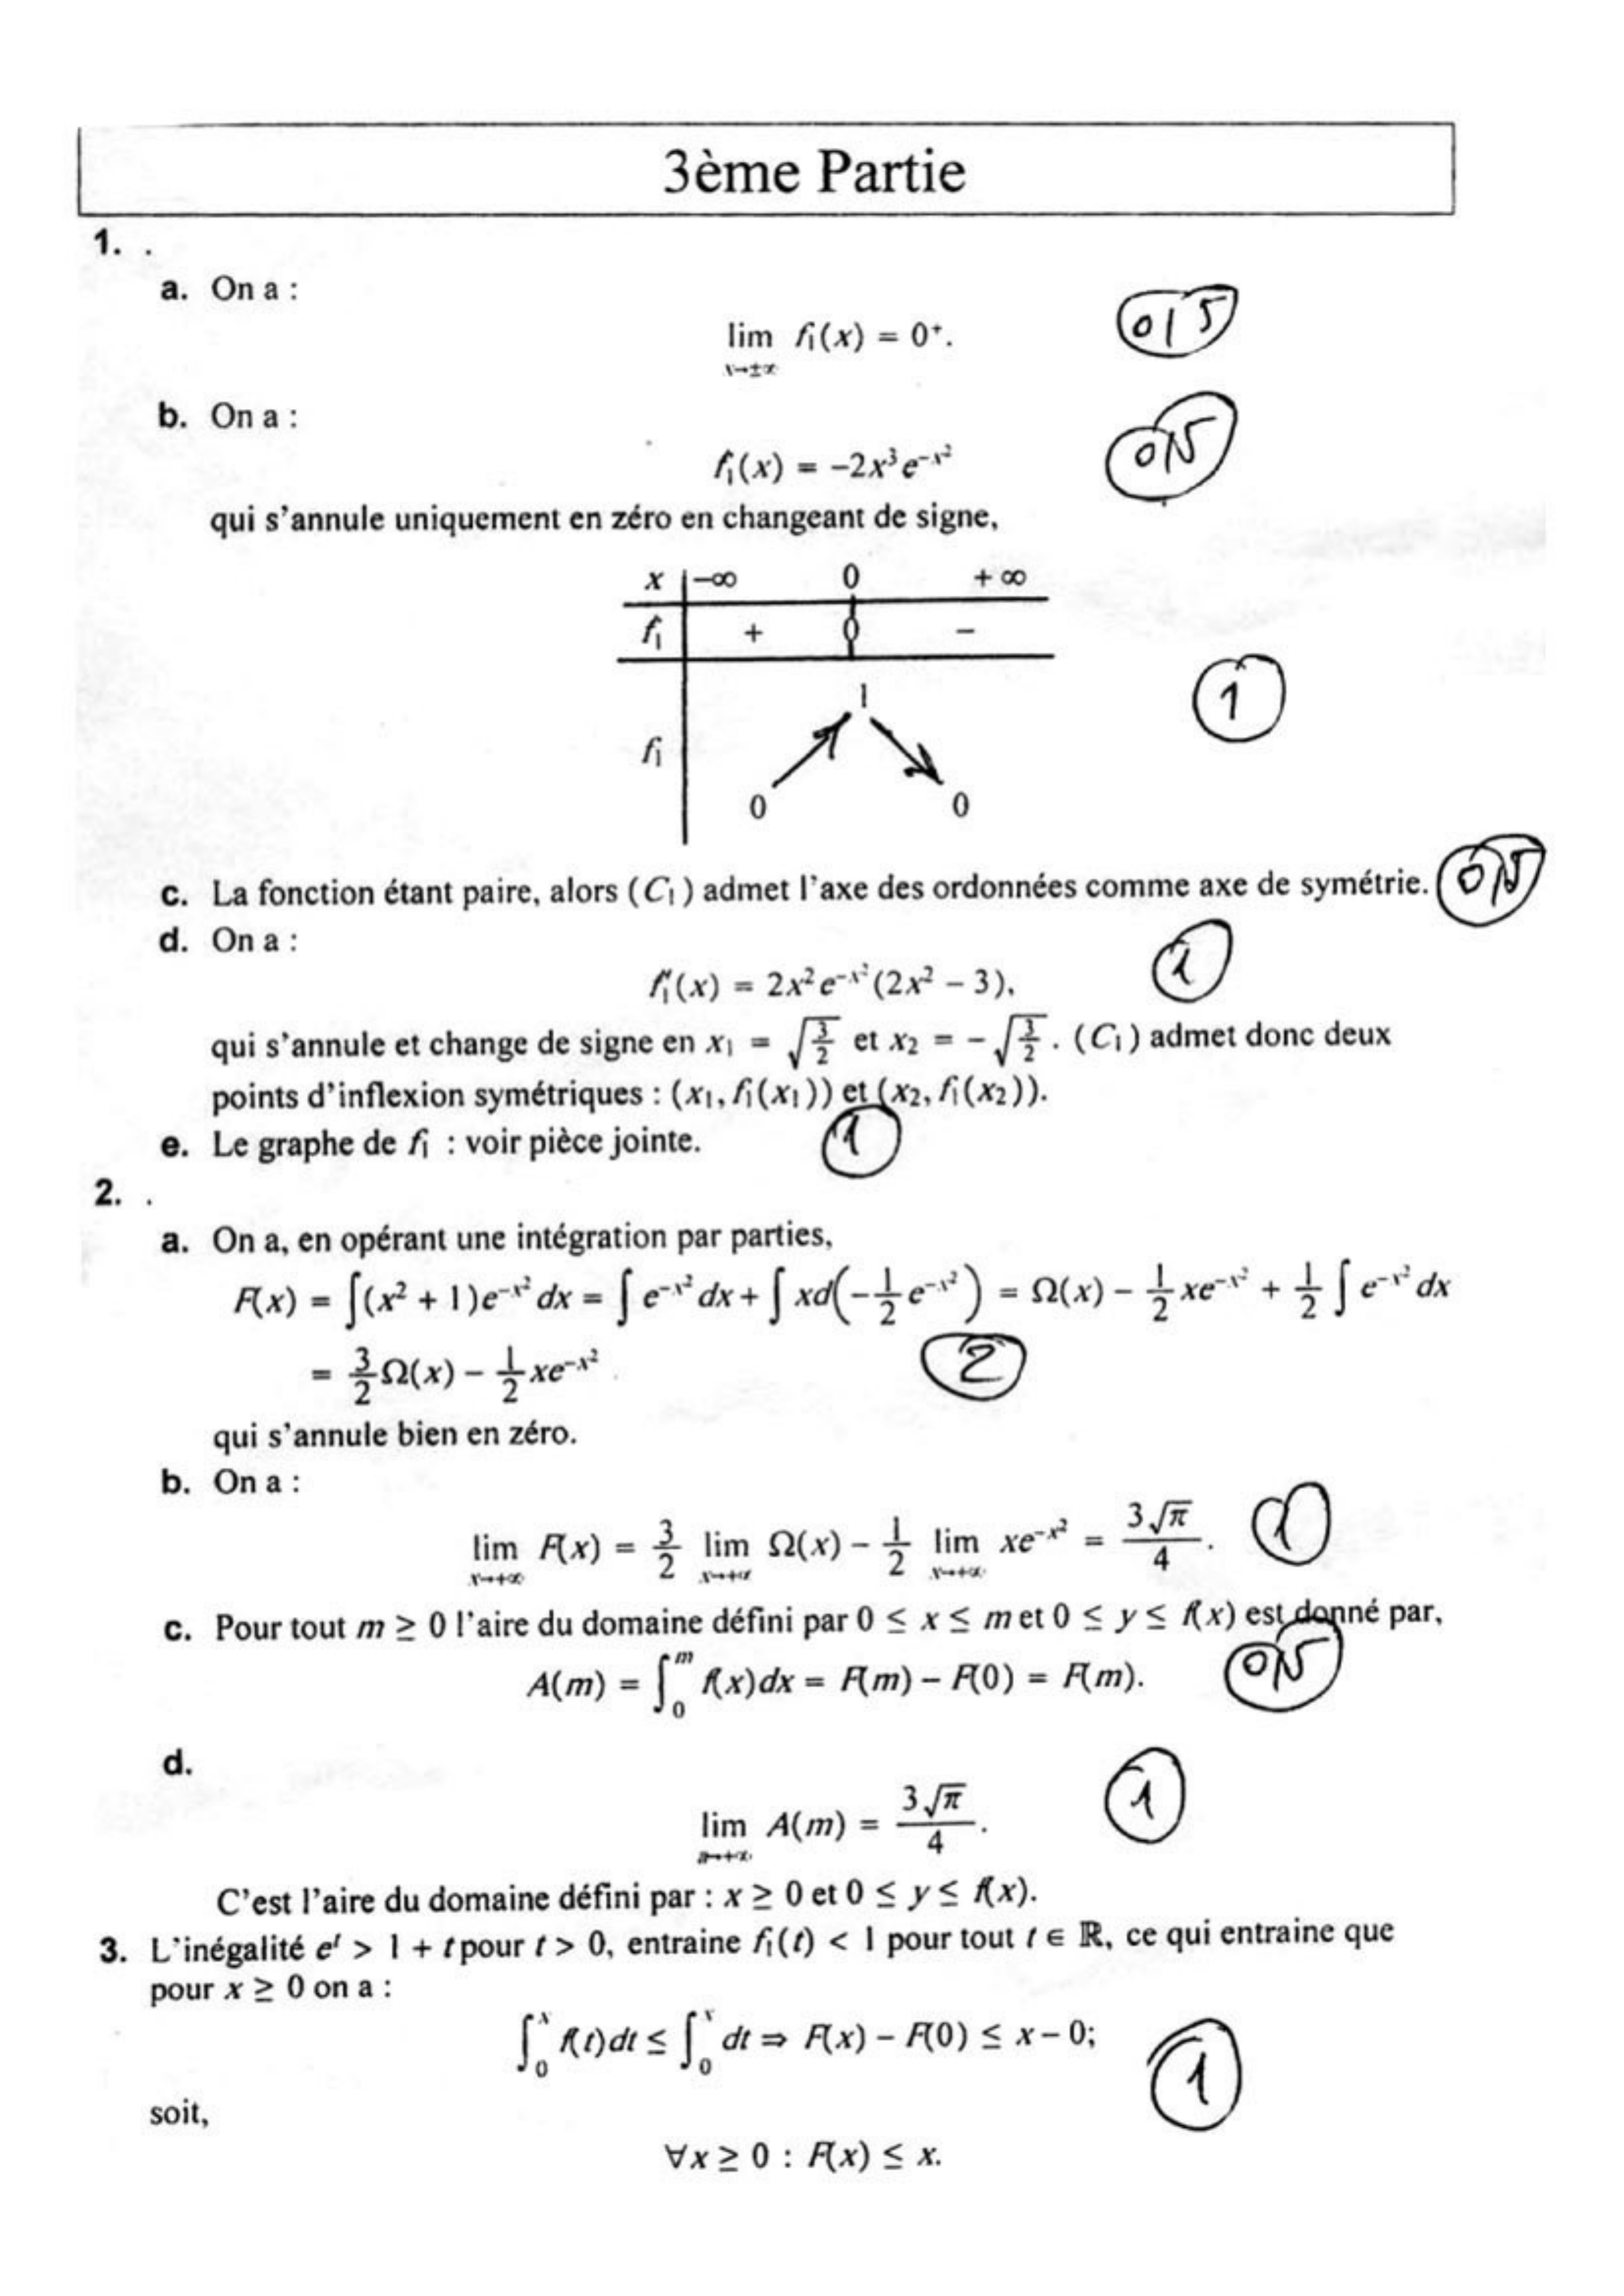 3ème Partie
1. .
a. On a :
lim f₁(x) = 0⁺.
x→±∞
0,5
b. On a :
f₁'(x) = −2x³e^{−x²}
0,5
qui s'annule uniquement en zéro en changeant de signe,
x −∞ 0 +∞
f₁' + 0 −
1
f₁
0 0
1
c. La fonction étant paire, alors (C₁) admet l'axe des ordonnées comme axe de symétrie. 0,5
d. On a :
f₁''(x) = 2x²e^{−x²}(2x² − 3),
1
qui s'annule et change de signe en x₁ = √(3/2) et x₂ = −√(3/2). (C₁) admet donc deux
points d'inflexion symétriques : (x₁, f₁(x₁)) et (x₂, f₁(x₂)).
e. Le graphe de f₁ : voir pièce jointe. 1
2. .
a. On a, en opérant une intégration par parties,
F(x) = ∫(x² + 1)e^{−x²}dx = ∫e^{−x²}dx + ∫xd(−½e^{−x²}) = Ω(x) − ½xe^{−x²} + ½∫e^{−x²}dx
= 3/2 Ω(x) − ½xe^{−x²}
2
qui s'annule bien en zéro.
b. On a :
lim F(x) = 3/2 lim Ω(x) − ½ lim xe^{−x²} = 3√π/4.
x→+∞ x→+∞ x→+∞
1
c. Pour tout m ≥ 0 l'aire du domaine défini par 0 ≤ x ≤ m et 0 ≤ y ≤ f(x) est donné par,
A(m) = ∫₀ᵐ f(x)dx = F(m) − F(0) = F(m).
0,5
d.
lim A(m) = 3√π/4.
a→+∞
1
C'est l'aire du domaine défini par : x ≥ 0 et 0 ≤ y ≤ f(x).
3. L'inégalité eᵗ > 1 + t pour t > 0, entraine f₁(t) < 1 pour tout t ∈ ℝ, ce qui entraine que
pour x ≥ 0 on a :
∫₀ˣ f(t)dt ≤ ∫₀ˣ dt ⇒ F(x) − F(0) ≤ x − 0;
1
soit,
∀x ≥ 0 : F(x) ≤ x.